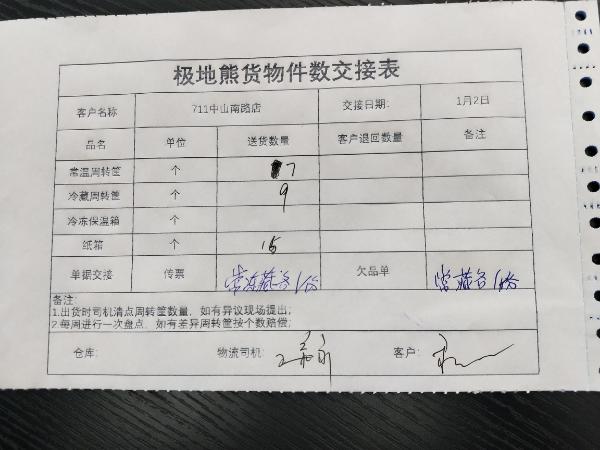 极地熊货物件数交接表
客户名称 711中山南路店 交接日期: 1月2日
品名 单位 送货数量 客户退回数量 备注
常温周转筐 个 7
冷藏周转筐 个 9
冷冻保温箱 个
纸箱 个
单据交接 传票 常冻藏各1份 欠品单 常藏各1份
备注:
1.出货时司机清点周转筐数量，如有异议现场提出;
2.每周进行一次盘点，如有差异周转筐按个数赔偿;
仓库: 物流司机: 客户: